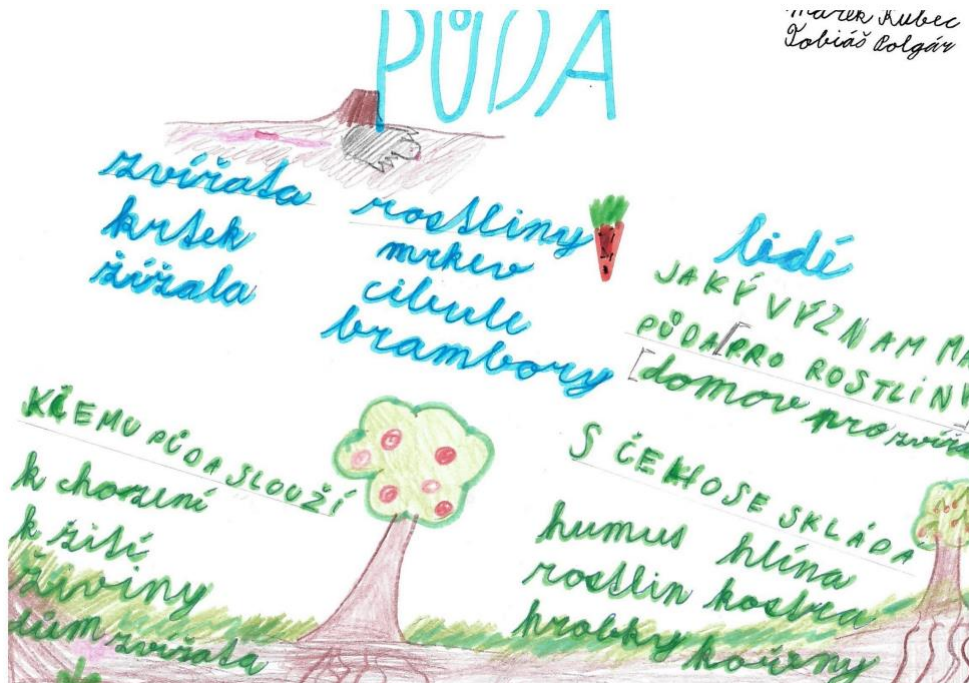 Marek Kubec
Tobiáš Polgár
PŮDA
zvířata
krtek
žížala
rostliny
mrkev
cibule
brambory
lidé
JAKÝ VÝZNAM MÁ
PŮDA PRO ROSTLINY
domov pro zvířa
K ČEMU PŮDA SLOUŽÍ
k chození
k žití
živiny
dům zvířata
S ČEHO SE SKLÁDÁ
humus hlína
rostlin kostra
hrobky kořeny